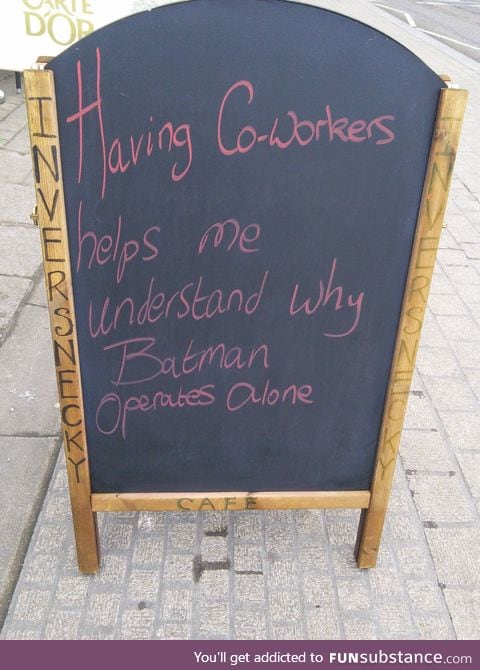 CARTE
D'OR
Having Co-workers
helps me
understand why
Batman
Operates alone
INVERSNECKY
INVERSNECKY
CAFE
You'll get addicted to FUNsubstance.com